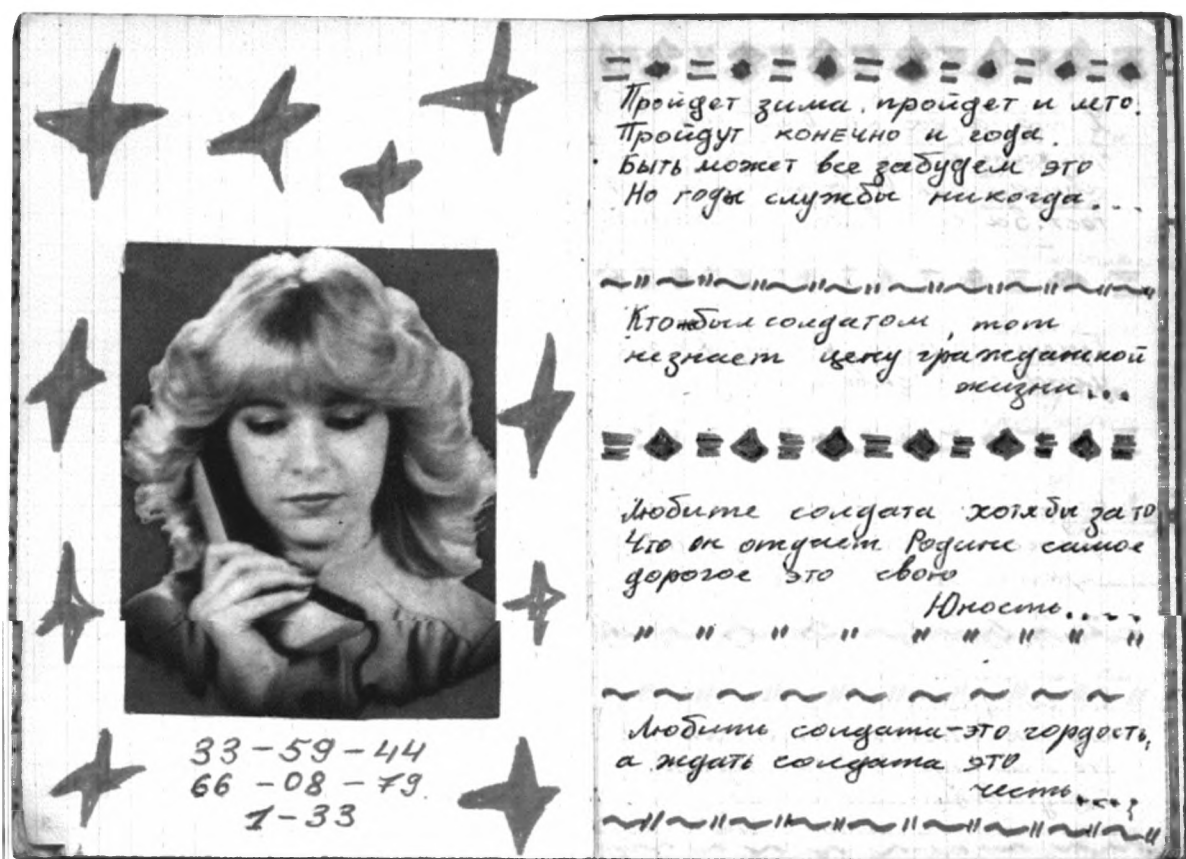 33-59-44
66-08-79
1-33
Пройдет зима, пройдет и лето.
Пройдут конечно и года.
Быть может все забудем это
Но годы службы никогда...
Кто был солдатом, тот
незнает цену гражданской
жизни...
Любите солдата хотябы за то
Что он отдает Родине самое
дорогое это свою
Юность....
Любить солдата-это гордость,
а ждать солдата это
честь....